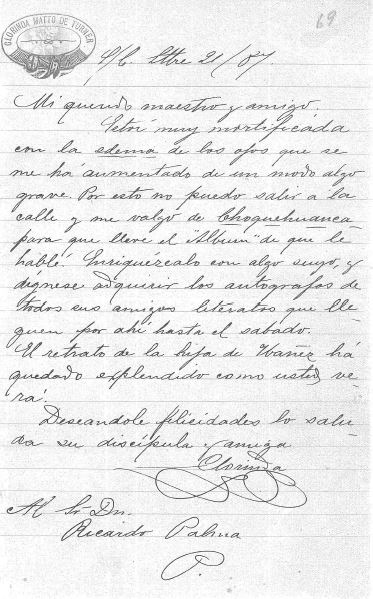 69
CLORINDA MATTO DE TURNER
S/C. Stbre 21/87.
Mi querido maestro y amigo.
Estoi muy mortificada
con la edema de los ojos que se
me há aumentado de un modo algo
grave. Por esto no puedo salir a la
calle y me valgo de Choquehuanca
para que lleve el "Album" de que lé
hablé. Enriquézcalo con algo suyo, y
dígnese adquirir los autógrafos de
todos sus amigos literatos que lle-
guen por ahí hasta el sabado.
El retrato de la hija de Ibañez há
quedado esplendido como usted ve-
rá.
Deseandole felicidades lo salu-
da su discípula y amiga
Clorinda
Al Sr. Dn.
Ricardo Palma
P.